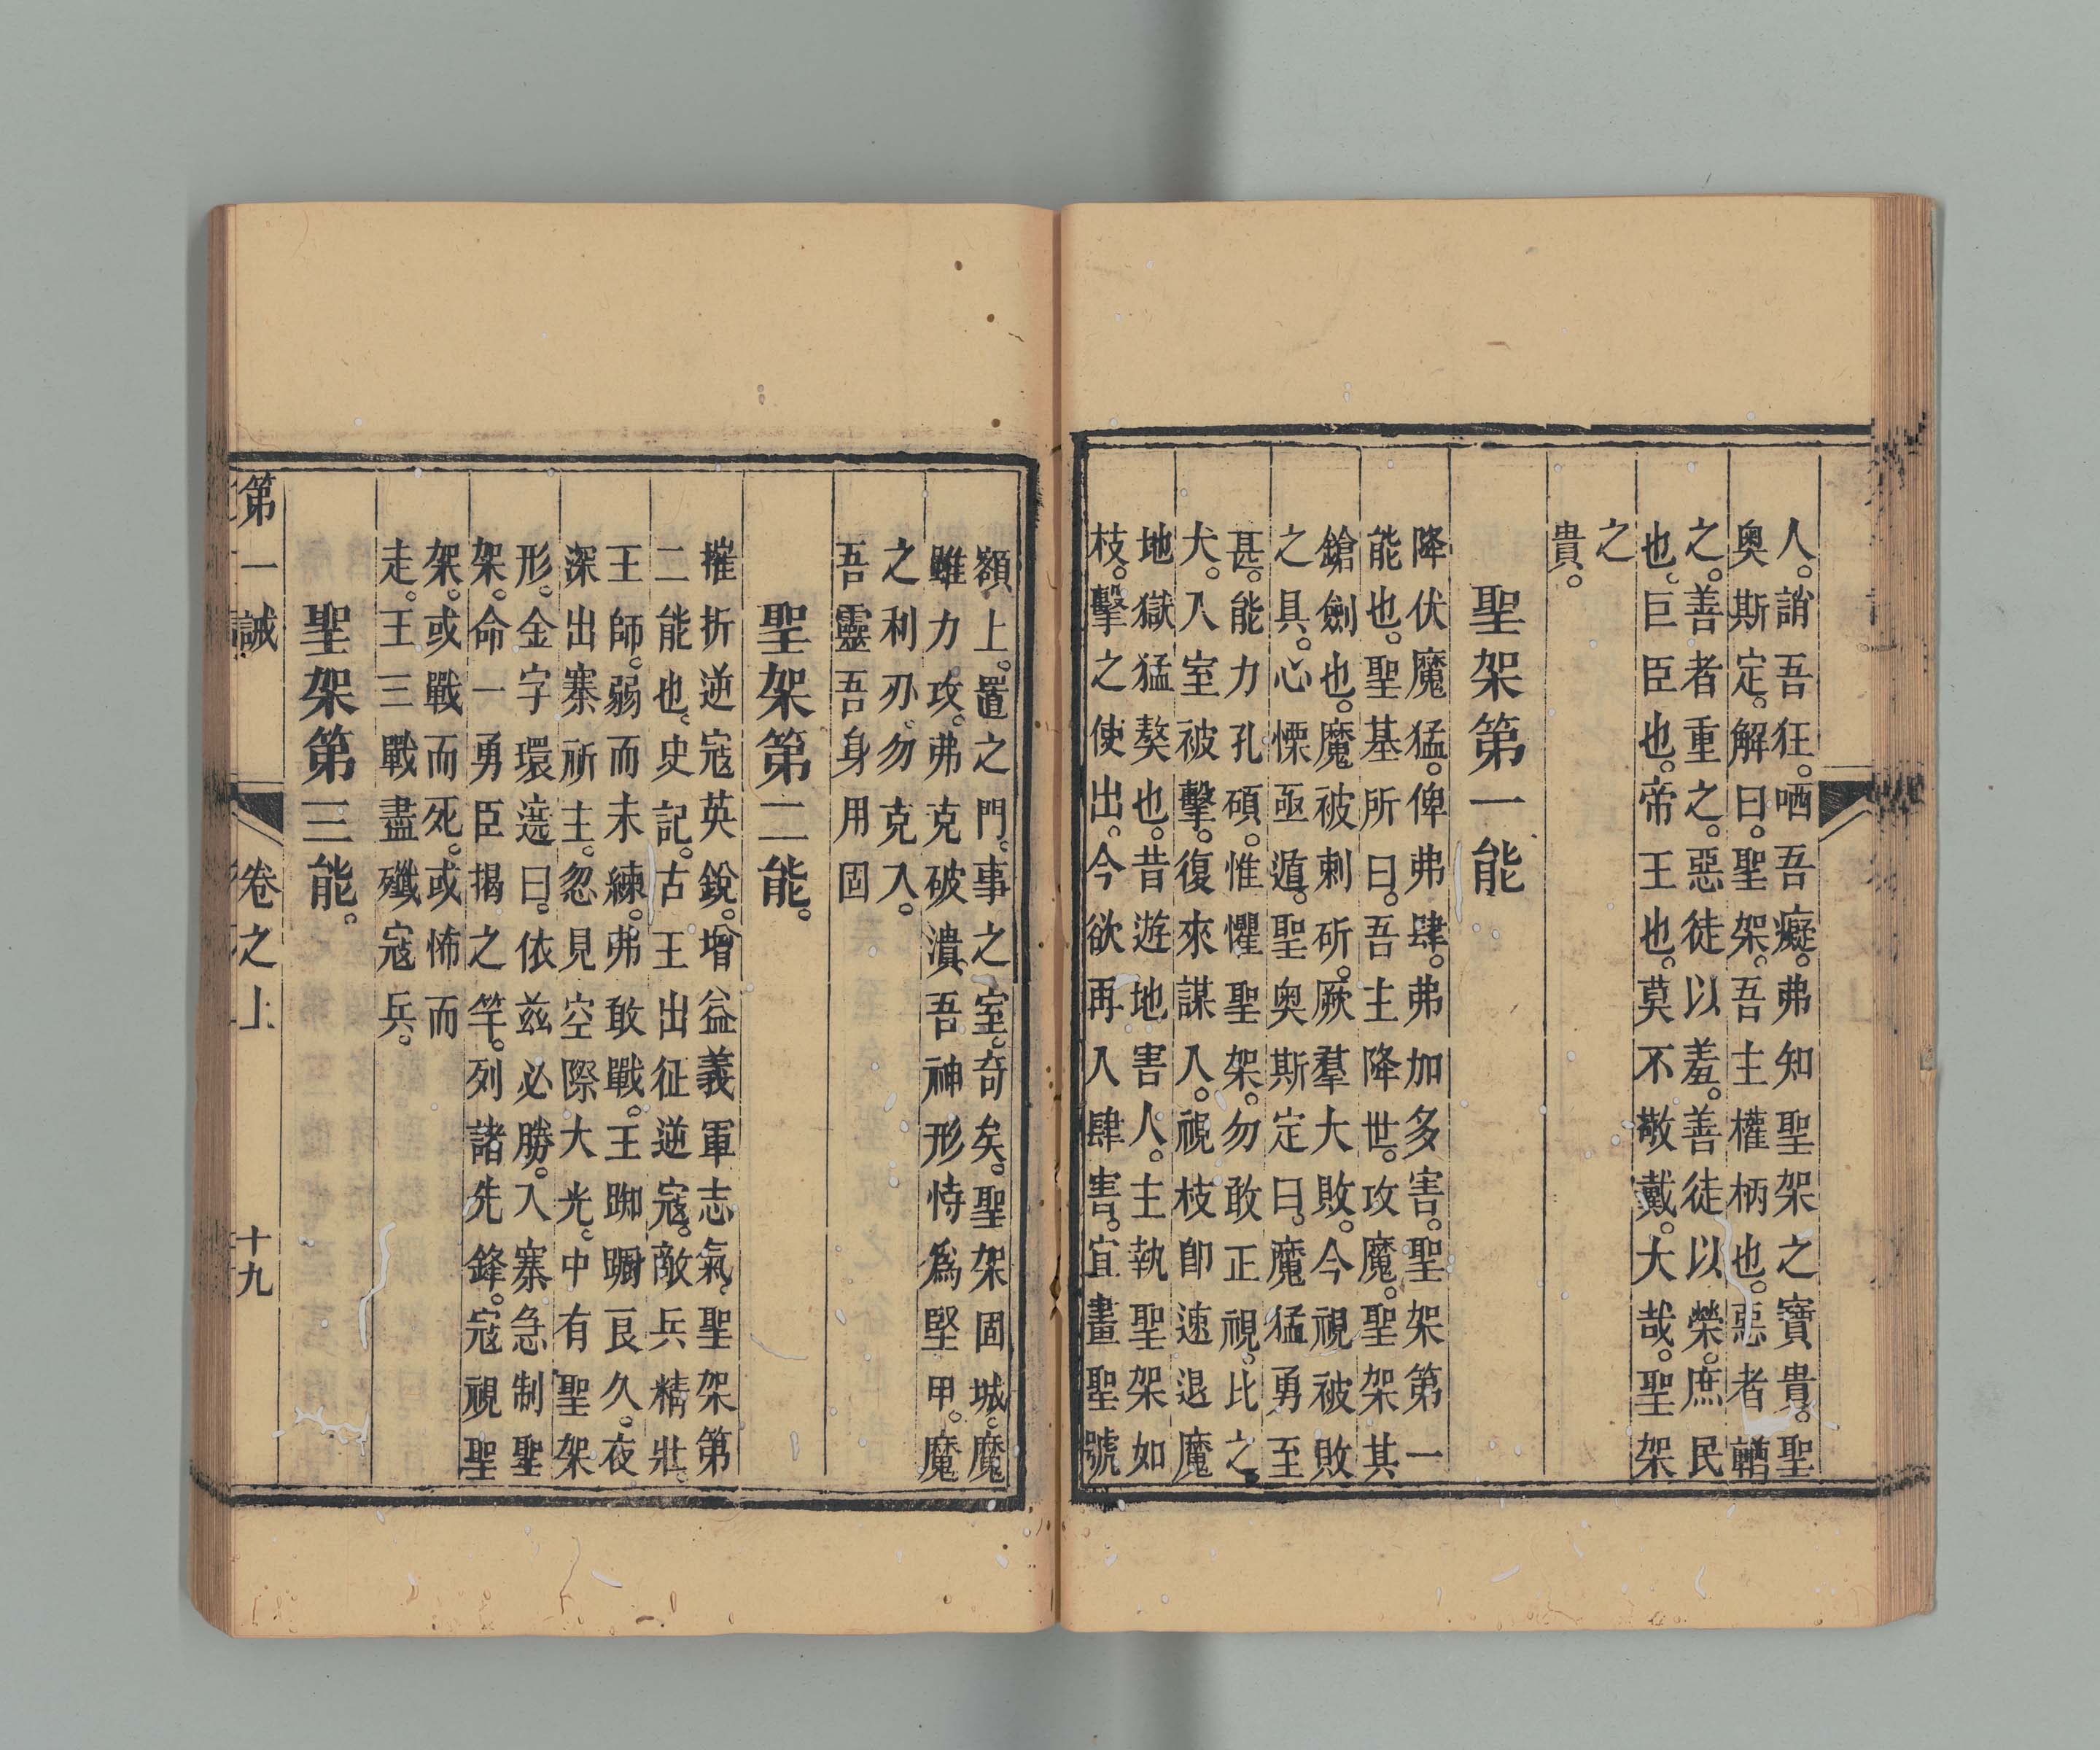 人。誚吾狂。哂吾癡。弗知聖架之寶貴。聖
奧斯定。解曰。聖架。吾主權柄也。惡者
之。善者重之。惡徒以羞。善徒以榮。庶民
也。巨臣也。帝王也。莫不敬戴。大哉。聖架
之
貴。
聖架第一能
降伏魔猛。俾弗肆。弗加多害。聖架第一
能也。聖基所曰。吾主降世。攻魔。聖架其
鎗劍也。魔被刺斫。厥羣大敗。今視被敗
之具。心慄亟遁。聖奧斯定曰。魔猛勇至
甚。能力孔碩。惟懼聖架。勿敢正視。比之
犬。入室被擊。復來謀入。視枝卽速退。魔
地獄猛獒也。昔遊地害人。主執聖架如
枝。擊之使出。今欲再入肆害。宜畫聖號
額上。置之門。事之室。奇矣。聖架固城。魔
雖力攻。弗克破潰。吾神形恃爲堅甲。魔
之利刃。勿克入。
吾靈吾身用固
聖架第二能。
摧折逆寇英銳。增益義軍志氣。聖架第
二能也。史記。古王出征逆寇。敵兵精壯。
王師。弱而未練。弗敢戰。王踟躕良久。夜
深出寨祈主。忽見空際大光。中有聖架
形。金字環遶曰。依茲必勝。入寨急制聖
架。命一勇臣揭之竿。列諸先鋒。寇視聖
架。或戰而死。或怖而
走。王三戰盡殲寇兵。
聖架第三能。
第一誡
卷之上
十九